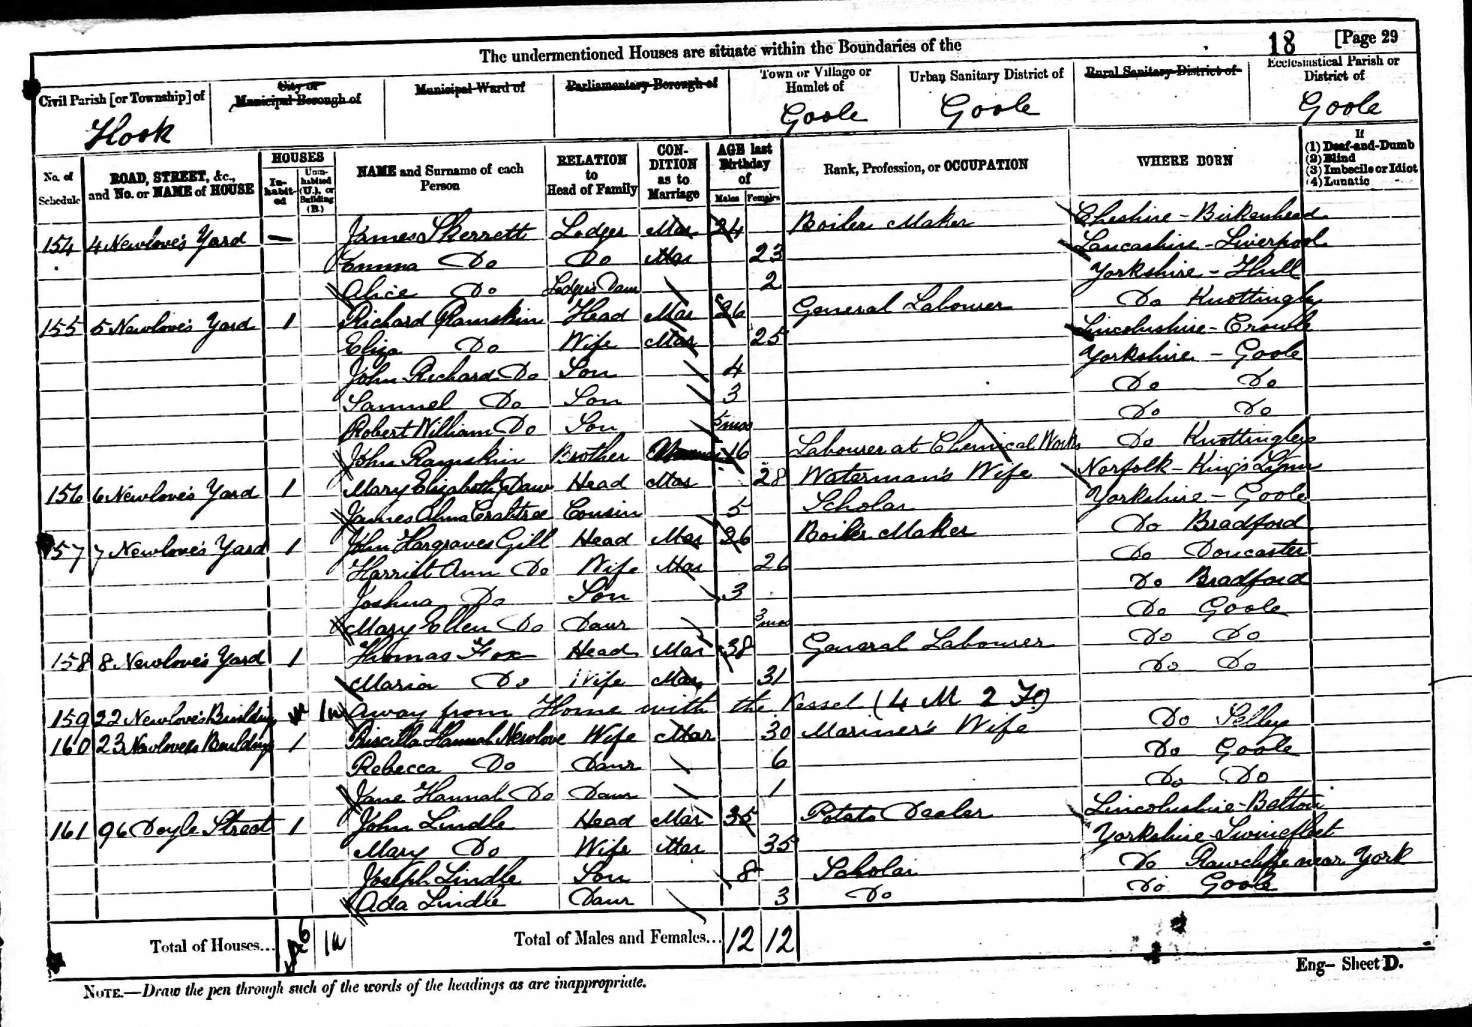 The undermentioned Houses are situate within the Boundaries of the 18 [Page 29
Civil Parish [or Township] of City or Municipal Borough of Municipal Ward of Parliamentary Borough of Town or Village or Hamlet of Urban Sanitary District of Rural Sanitary District of Ecclesiastical Parish or District of
Hook Goole Goole Goole
No. of Schedule ROAD, STREET, &c., and No. or NAME of HOUSE HOUSES Inhabited Uninhabited (U.), or Building (B.) NAME and Surname of each Person RELATION to Head of Family CONDITION as to Marriage AGE last Birthday of Males Females Rank, Profession, or OCCUPATION WHERE BORN If (1) Deaf-and-Dumb (2) Blind (3) Imbecile or Idiot (4) Lunatic
154 4 Newlove's Yard — James Skerrett Lodger Mar 24 Boiler Maker Cheshire - Birkenhead
Emma Do Do Mar 23 Lancashire - Liverpool
Alice Do Lodger's Daur 2 Yorkshire - Hull
155 5 Newlove's Yard 1 Richard Ramskin Head Mar 26 General Labourer Do Knottingley
Eliza Do Wife Mar 25 Lincolnshire - Crowle
John Richard Do Son 4 Yorkshire - Goole
Samuel Do Son 3 Do Do
Robert William Do Son 5 mos Do Do
John Ramskin Brother 16 Labourer at Chemical Works Do Knottingley
156 6 Newlove's Yard 1 Mary Elizabeth Daw Head Mar 28 Waterman's Wife Norfolk - King's Lynn
James Crabtree Cousin 5 Scholar Yorkshire - Goole
157 7 Newlove's Yard 1 John Hargraves Gill Head Mar 26 Boiler Maker Do Bradford
Harriet Ann Do Wife Mar 26 Do Doncaster
Joshua Do Son 3 Do Bradford
Mary Ellen Do Daur 3 mos Do Goole
158 8 Newlove's Yard 1 Thomas Fox Head Mar 38 General Labourer Do Do
Maria Do Wife Mar 31 Do Do
159 22 Newlove's Building 1 u Away from Home with the Vessel (4 M 2 F)
160 23 Newloves Building 1 Priscilla Hannah Newlove Wife Mar 30 Mariner's Wife Do Selby
Rebecca Do Daur 6 Do Goole
Jane Hannah Do Daur 1 Do Do
161 96 Doyle Street 1 John Lindle Head Mar 35 Potato Dealer Lincolnshire - Belton
Mary Do Wife Mar 35 Yorkshire Swinefleet
Joseph Lindle Son 8 Scholar Do Rawcliffe near York
Ada Lindle Daur 3 Do Do Goole
Total of Houses... 6 1u Total of Males and Females... 12 12
Eng- Sheet D.
NOTE.—Draw the pen through such of the words of the headings as are inappropriate.